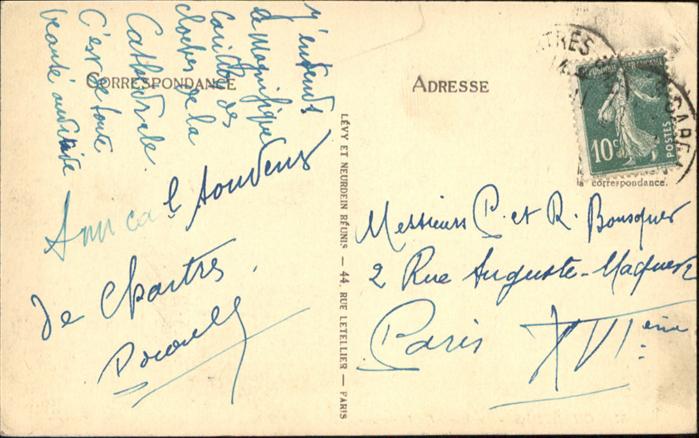 J'entends
le magnifique
carillon des
cloches de la
Cathédrale.
C'est de toute
beauté
CORRESPONDANCE
Amical souvenir
de Chartres.
LÉVY ET NEURDEIN RÉUNIS — 44, RUE LETELLIER — PARIS
ADRESSE
10c
POSTES
GARE
la correspondance.
Messieurs P. et R. Bousquet
2 Rue Auguste-Maquet
Paris XVIème